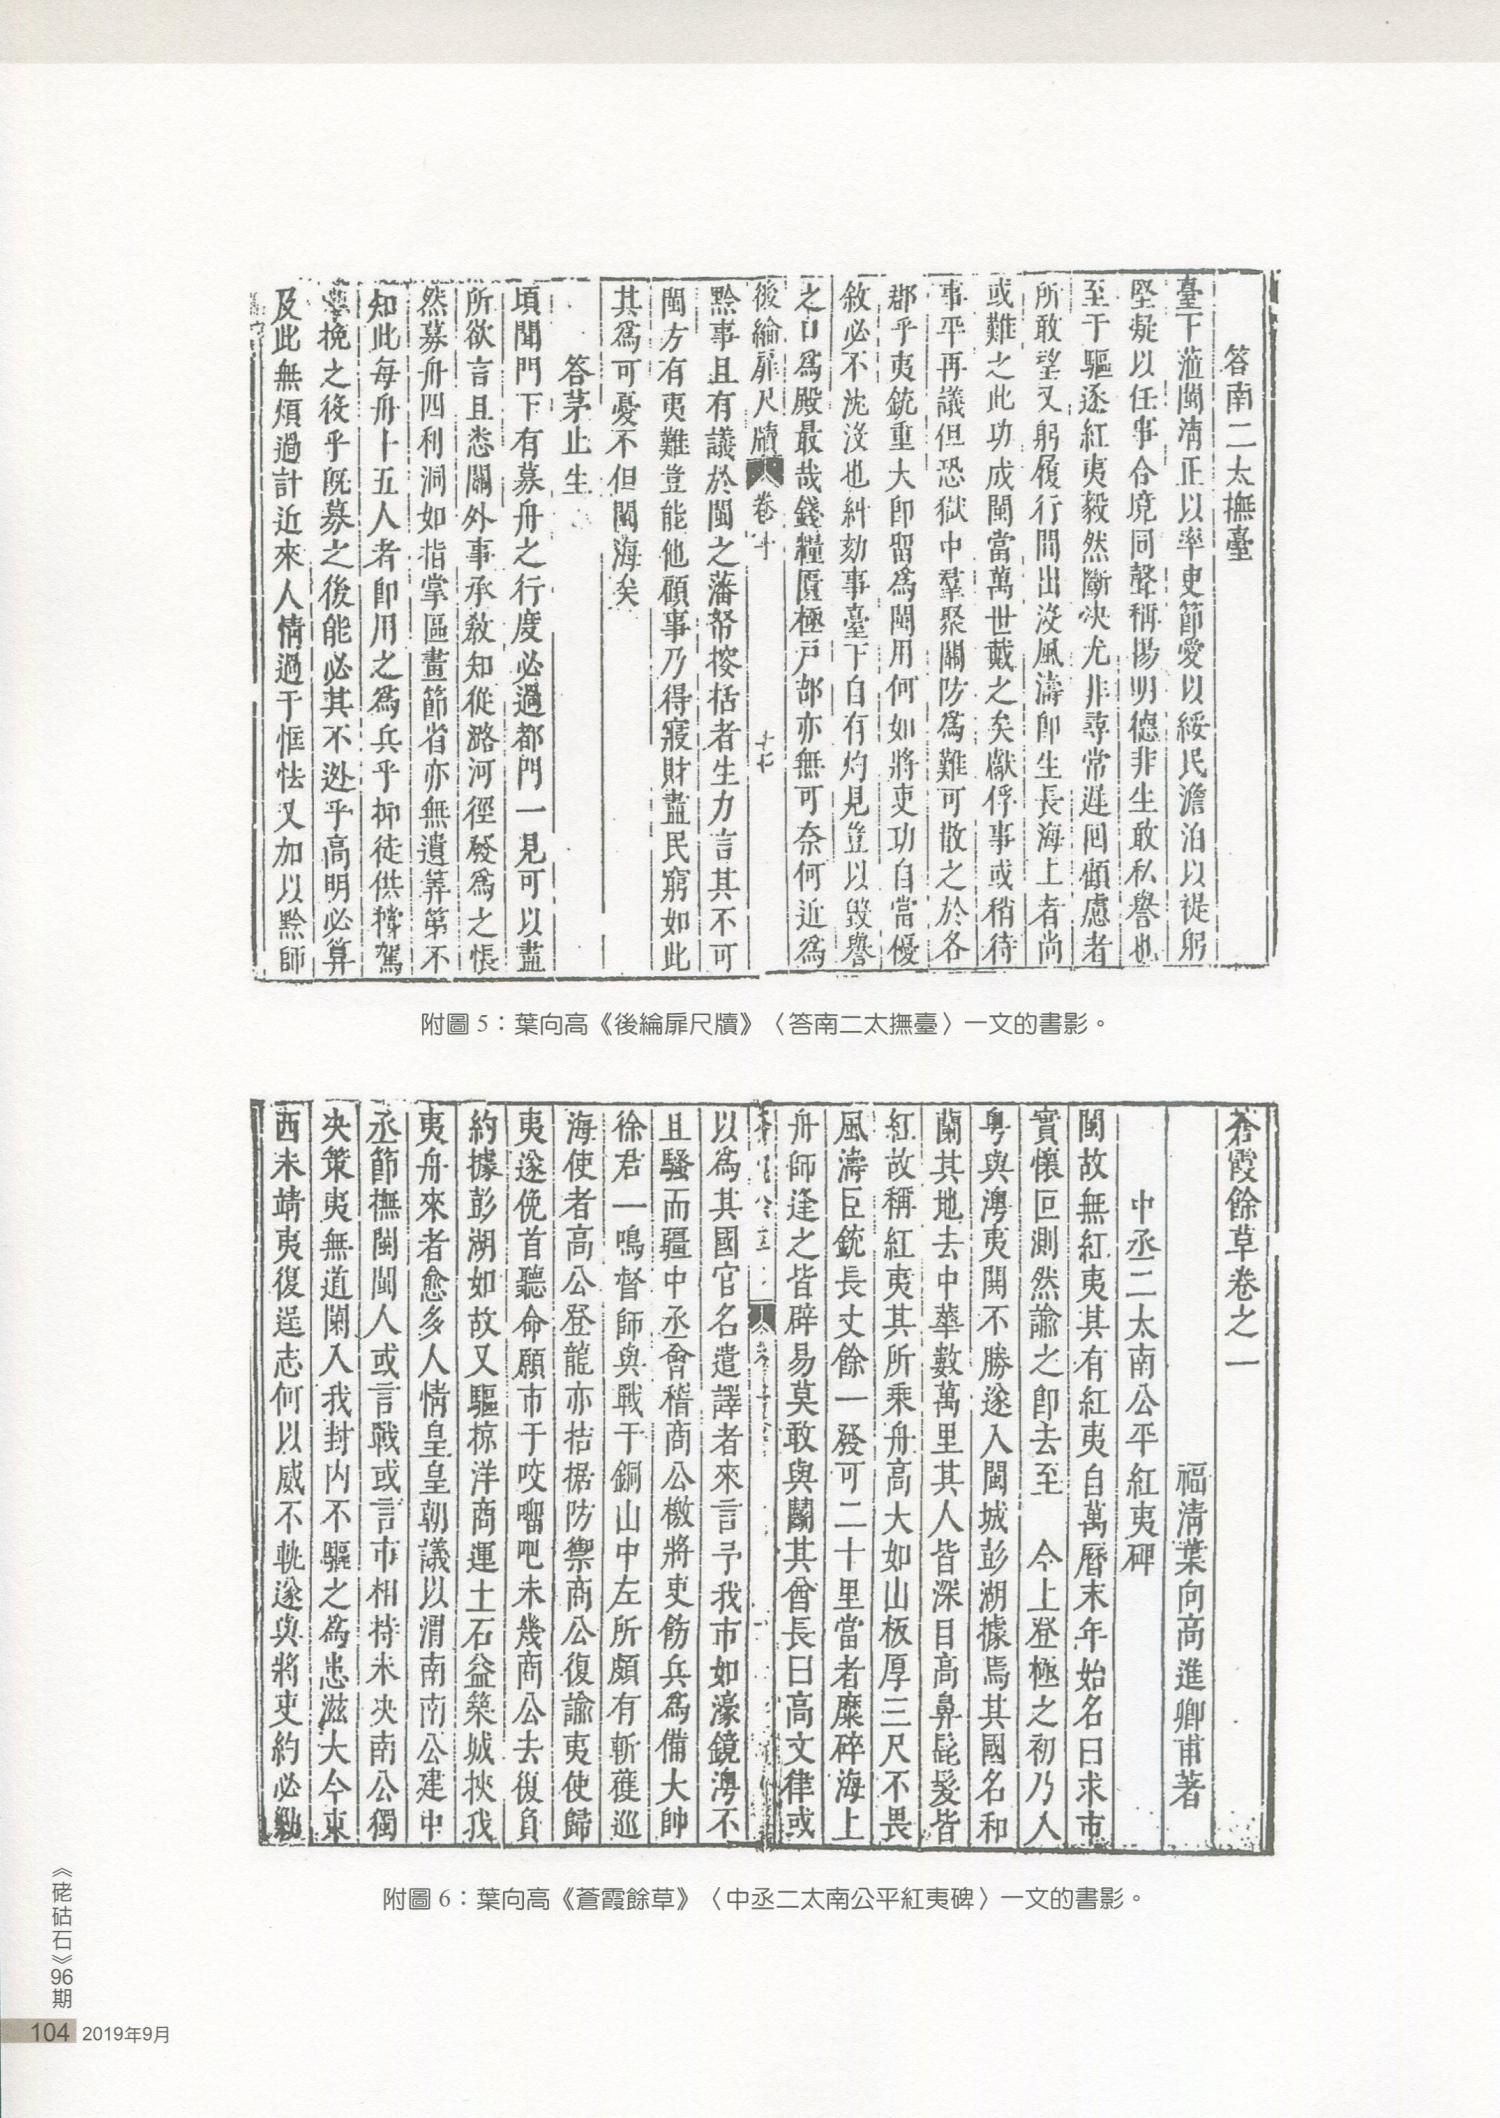 答南二太撫臺
臺下蒞閩清正以率吏節愛以綏民澹泊以褆躬
堅凝以任事合境同聲稱揚明德非生敢私譽也
至于驅逐紅夷毅然斷決尤非尋常遲回顧慮者
所敢望又躬履行間出沒風濤即生長海上者尚
或難之此功成閩當萬世戴之矣獻俘事或稍待
事平再議但恐獄中羣聚關防為難可散之於各
郡乎夷銃重大即留為閩用何如將吏功自當優
敘必不沈沒也糾劾事臺下自有灼見豈以毀譽
之口為殿最哉錢糧匱極戶部亦無可奈何近為
後綸扉尺牘 卷十 十七
黔事且有議於閩之藩帑按括者生力言其不可
閩方有夷難豈能他顧事乃得寢財盡民窮如此
其為可憂不但閩海矣
答茅止生
頃聞門下有募舟之行度必過都門一見可以盡
所欲言且悉關外事承敎知從潞河徑發為之悵
然募舟四利洞如指掌區畫節省亦無遺筭第不
知此每舟十五人者即用之為兵乎抑徒供撐駕
挽之後乎既募之後能必其不逃乎高明必算
及此無煩過計近來人情過于恇怯又加以黔師
附圖5：葉向高《後綸扉尺牘》〈答南二太撫臺〉一文的書影。
蒼霞餘草卷之一
福清葉向高進卿甫著
中丞二太南公平紅夷碑
閩故無紅夷其有紅夷自萬曆末年始名曰求市
實懷叵測然諭之即去至 今上登極之初乃入
粤與澚夷鬨不勝遂入閩城彭湖據焉其國名和
蘭其地去中華數萬里其人皆深目高鼻髭髮皆
紅故稱紅夷其所乘舟高大如山板厚三尺不畏
風濤巨銃長丈餘一發可二十里當者糜碎海上
舟師逢之皆辟易莫敢與鬬其酋長曰高文律或
以為其國官名遣譯者來言予我市如濠鏡澚不
且騷而疆中丞會稽商公檄將吏飭兵為備大帥
徐君一鳴督師與戰于銅山中左所頗有斬獲巡
海使者高公登龍亦拮据防禦商公復諭夷使歸
夷遂俛首聽命願市于咬𠺕吧未幾商公去復負
約據彭湖如故又驅掠洋商運土石益築城挾我
夷舟來者愈多人情皇皇朝議以渭南南公建中
丞節撫閩閩人或言戰或言市相持未決南公獨
決策夷無道闌入我封內不驅之為患滋大今東
西未靖夷復逞志何以威不軌遂與將吏約必勦
附圖6：葉向高《蒼霞餘草》〈中丞二太南公平紅夷碑〉一文的書影。
《硓𥑮石》96期
104 2019年9月